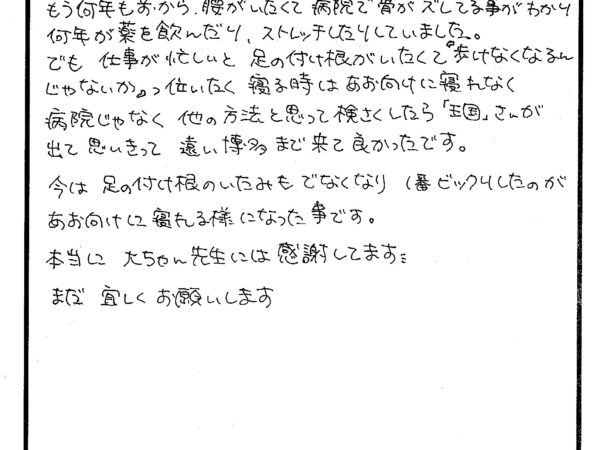 もう何年もまえから、腰がいたくて病院で骨がズレてる事がわかり
何年か薬を飲んだり、ストレッチしたりしていました。
でも 仕事が忙しいと 足の付け根がいたくて『歩けなくなるん
じゃないか』っ位いたく 寝る時はあお向けに寝れなく
病院じゃなく 他の方法と思って検さくしたら「王国」さんが
出て 思いきって 遠い博多まで来て良かったです。
今は 足の付け根のいたみもでなくなり 1番ビックリしたのが
あお向けに寝れる様になった事です。
本当に 大ちゃん先生には感謝してます
まだ 宜しくお願いします